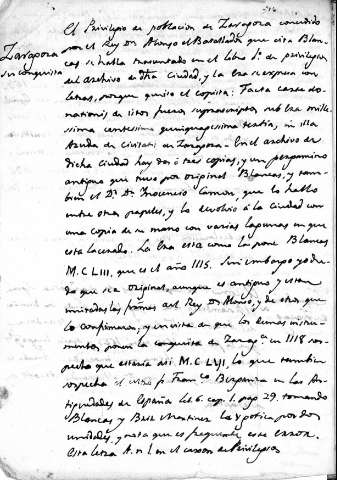 Zaragoza
su conquista
El Privilegio de poblacion de Zaragoza concedido
por el Rey Dn. Alonso el Batallador que cita Blan-
cas se halla trasuntado en el libro 1º. de privilegios
del archivo de dha Ciudad, y la Era se expresa con
letras, porque quiso el copista: Facta carta do-
nationis de istos fueros suprascriptos sub Era mille-
sima centesima quinquagessima tertia, in illa
Azuda de civitate de Zaragoza. En el archivo de
dicha ciudad hay dos ó tres copias, y un pergamino
antiguo que tuvo por original Blancas, y tam-
bien el Dr. Dn. Inocencio Camon, que lo halló
entre otros papeles, y lo devolvió á la Ciudad con
una copia de su mano con varias lagunas en que
esta lacerado. La Era está como la pone Blancas
M.C.LIII, que es el año 1115. Sin embargo yo du-
do que sea original, aunque es antiguo y estan
imitadas las firmas del Rey Dn. Alonso, y de otros que
lo confirmaron, y en vista de que los demas instru-
mentos ponen la conquista de Zarag.ª en 1118 sos-
pecho que estaria alli M.C.LVI, lo que tambien
sospecha el mismo p. Franco. Berganza en las An-
tiguedades de España lib. 6. cap. 1. pag. 29. tomando
Blancas y Briz Martinez la V gotica por dos
unidades, y nota que es frequente este error.
Esta letra A. n. 1. en el caxon de Privilegios